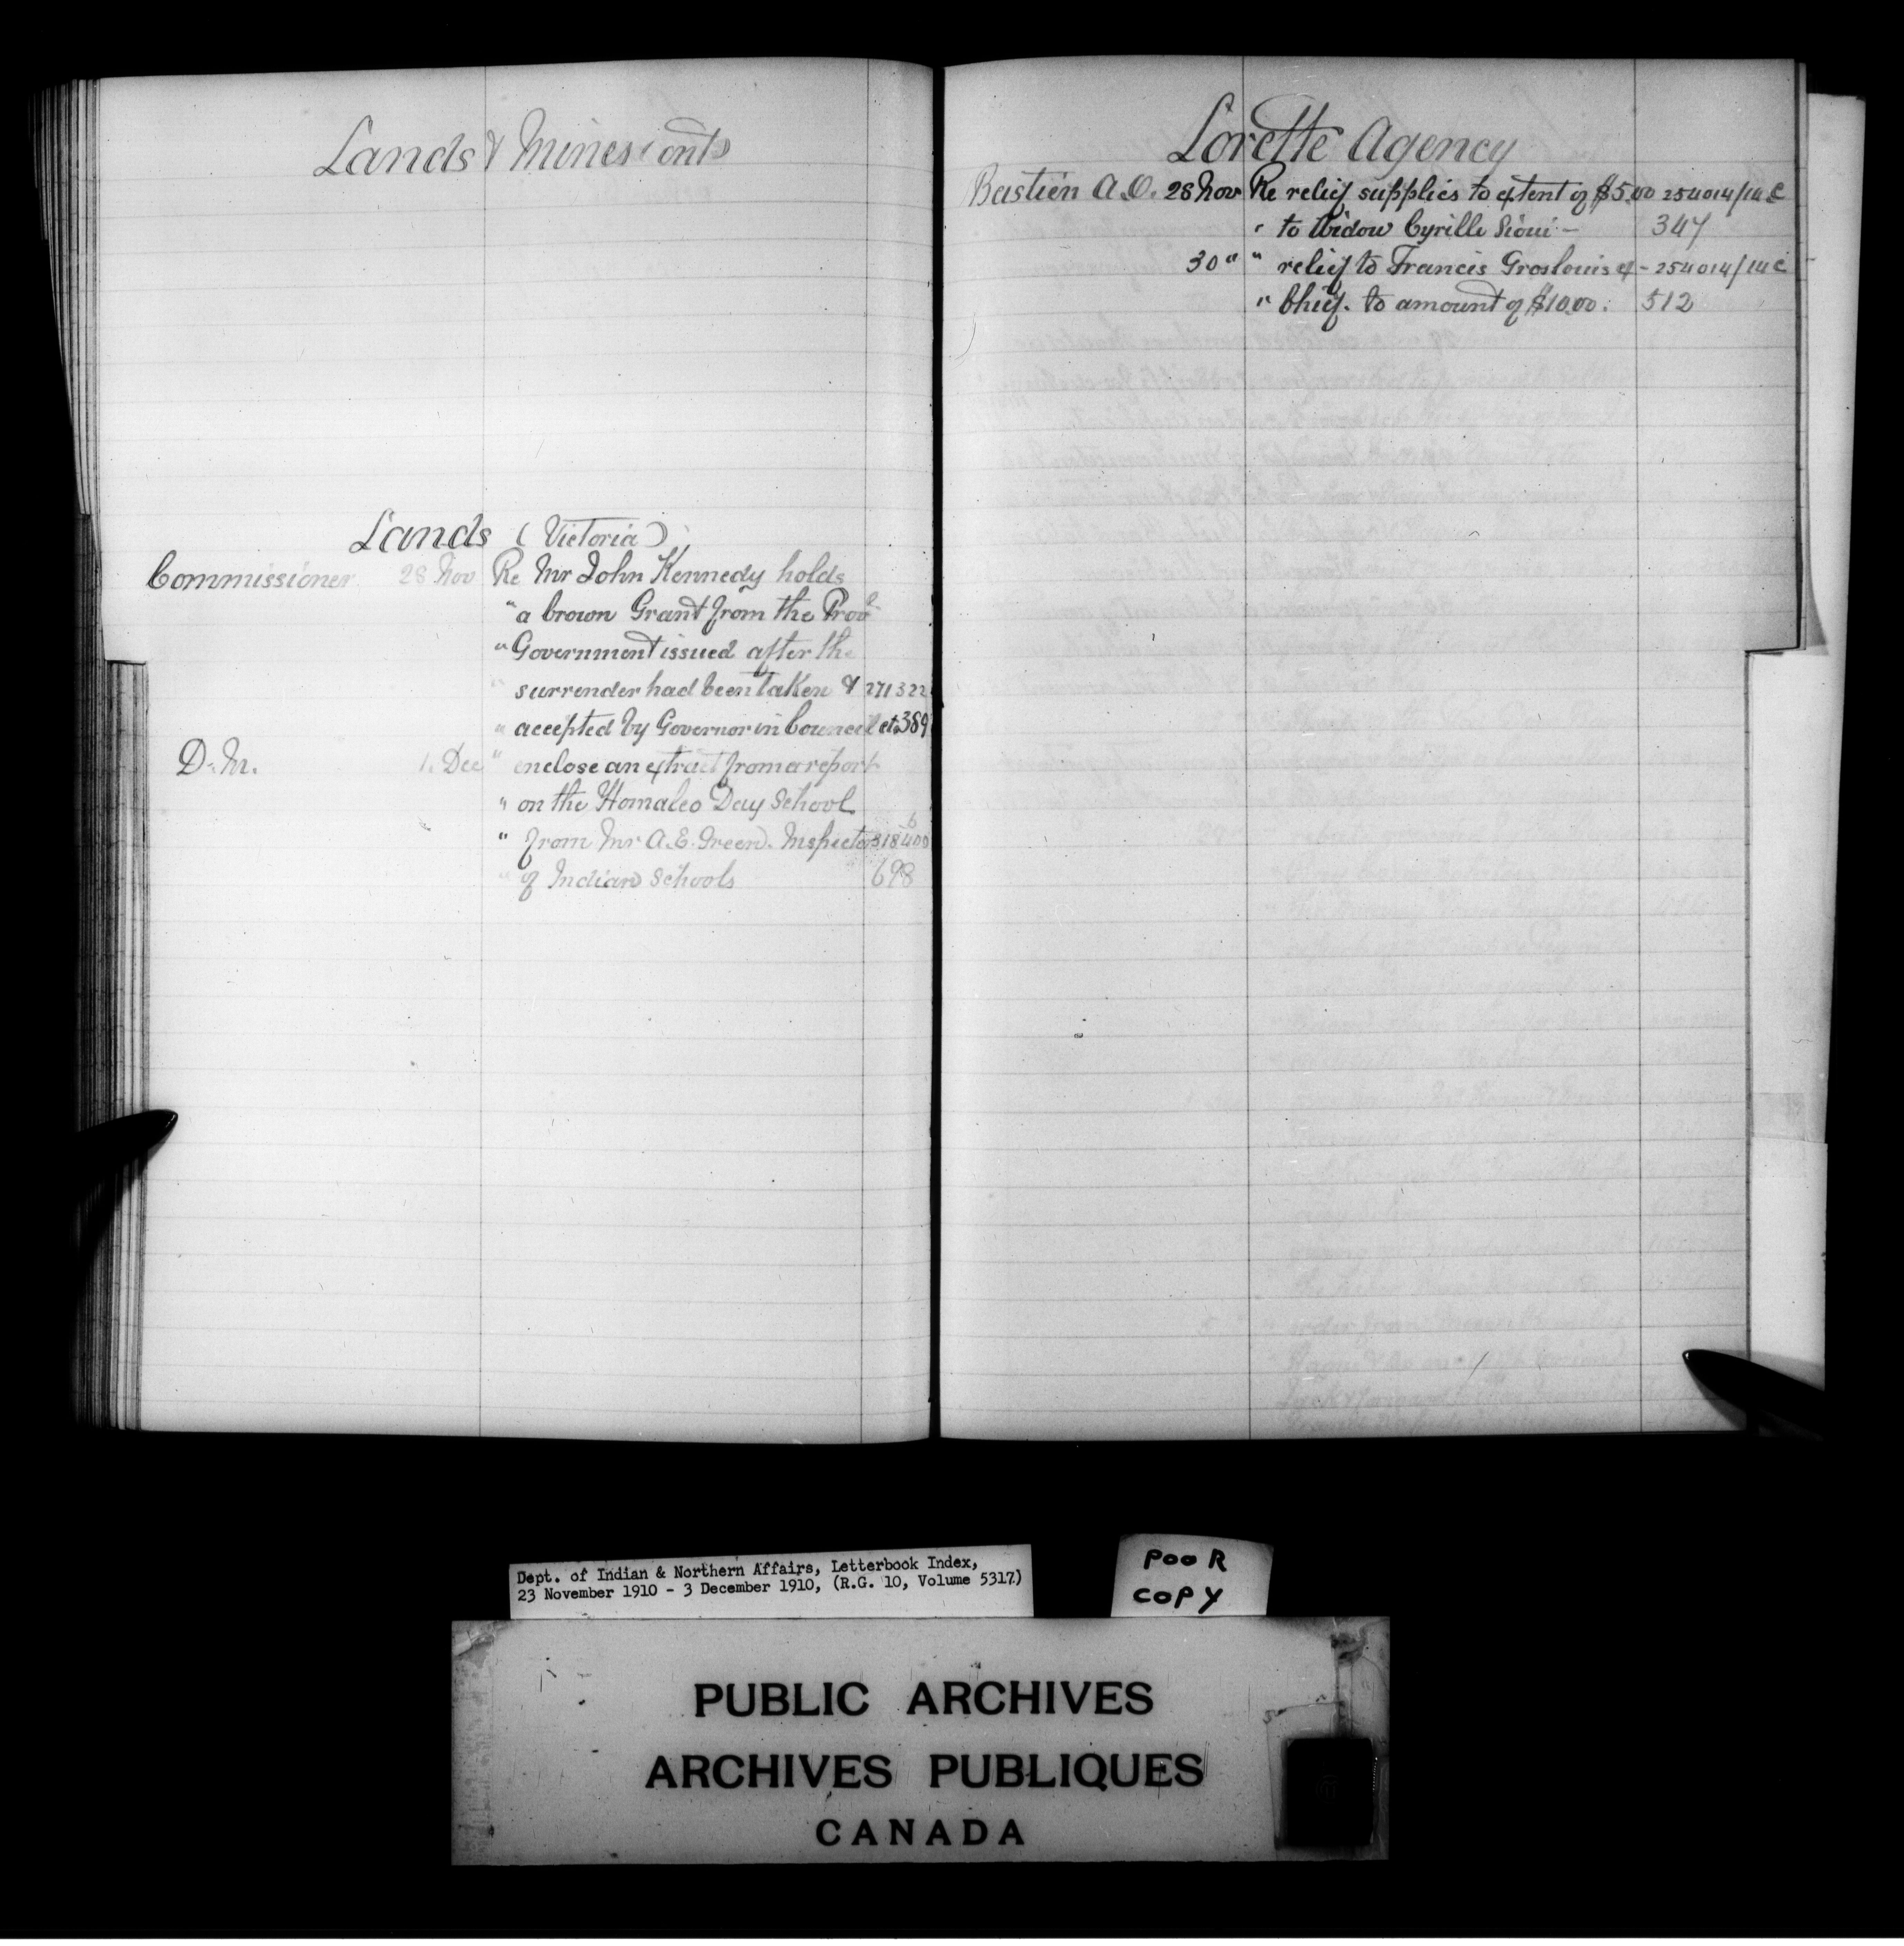 Lands & Mines (Ont)
Lands (Victoria)
Commissioner 28 Nov Re Mr John Kennedy holds
" a Crown Grant from the Prov
" Government issued after the
" surrender had been taken & 271322
" accepted by Governor in Council etc 389
D.M. 1. Dec " enclose an extract from a report
" on the Homalco Day School
" from Mr A.E. Green. Inspector 318400 6
" of Indian Schools 698
Lorette Agency
Bastien A.O. 28 Nov Re relief supplies to extent of $5.00 254014/14 C
" to Widow Cyrille Sioui - 347
30 " " relief to Francis Groslouis ex - 254014/14 C
" Chief. to amount of $10.00. 512
Dept. of Indian & Northern Affairs, Letterbook Index,
23 November 1910 - 3 December 1910, (R.G. 10, Volume 5317)
POOR
COPY
PUBLIC ARCHIVES
ARCHIVES PUBLIQUES
CANADA